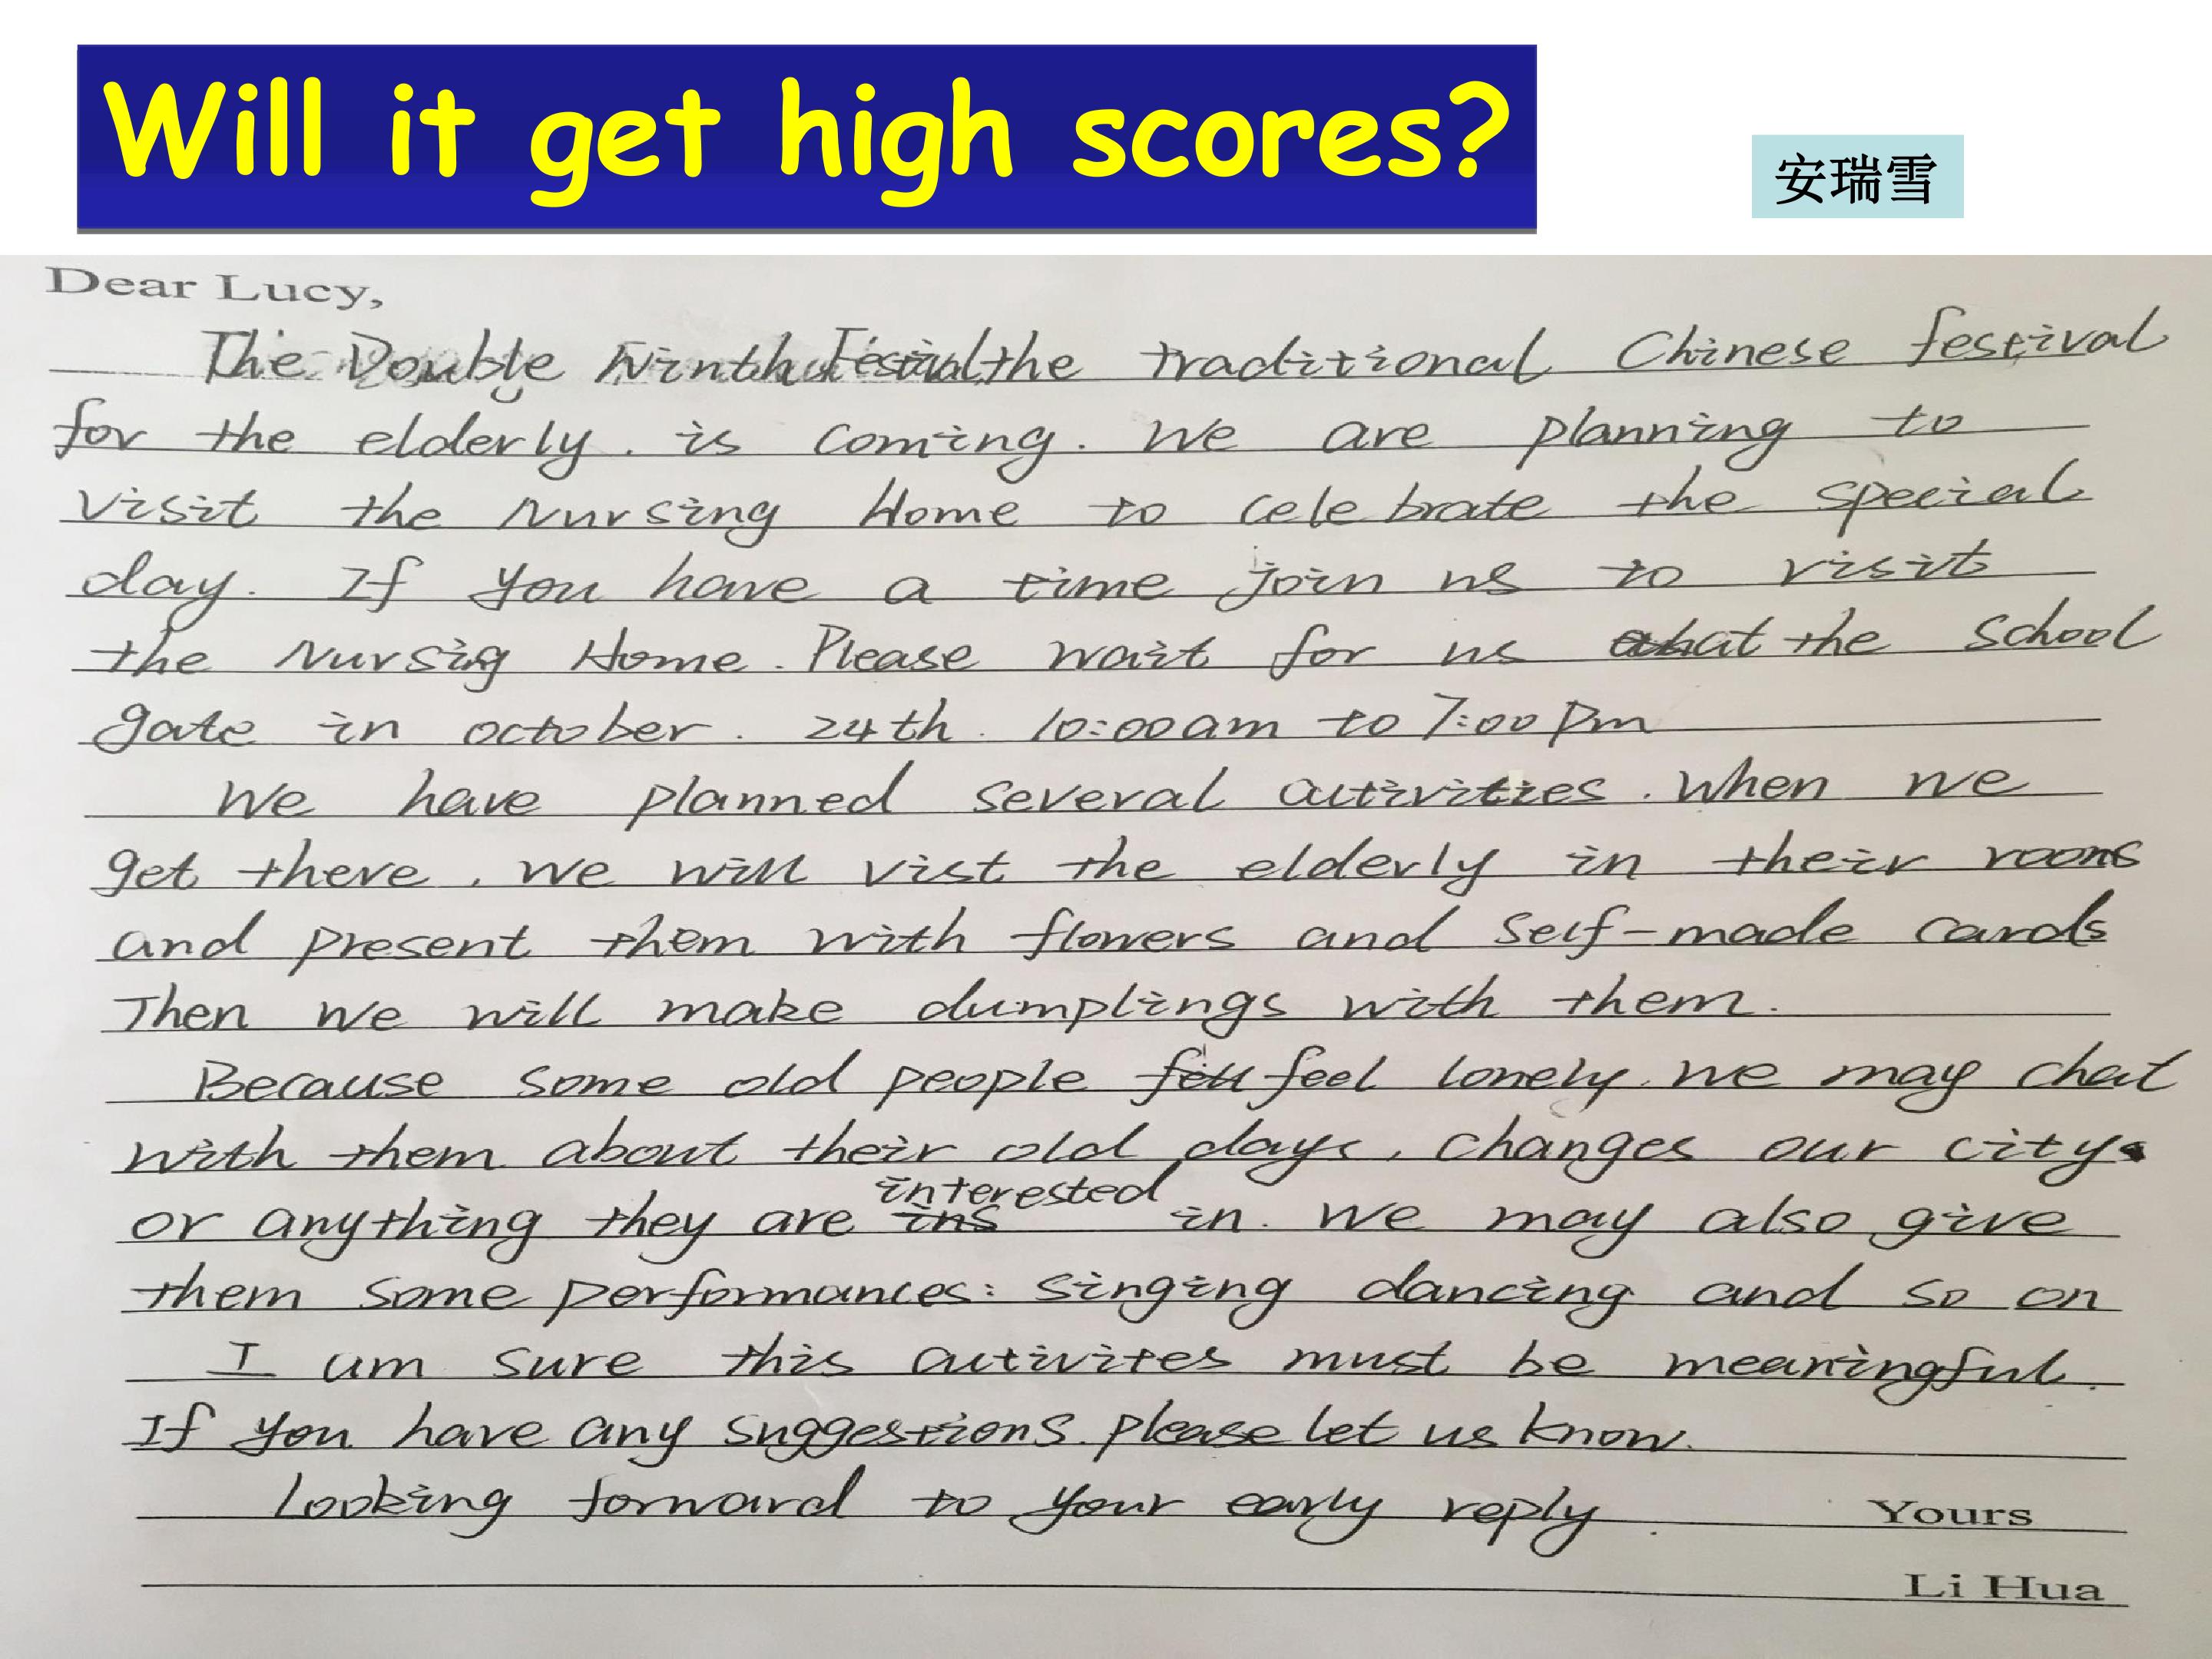 Will it get high scores?
安瑞雪
Dear Lucy,
The Double Ninth Festival, the traditional Chinese festival
for the elderly, is coming. We are planning to
visit the Nursing Home to celebrate the special
day. If you have a time join us to visit
the Nursig Home. Please wait for us at the school
gate in october. 24th. 10:00am to 7:00pm
We have planned several activities. When we
get there, we will vist the elderly in their rooms
and present them with flowers and self-made cards
Then we will make dumplings with them.
Because some old people feel lonely. we may chat
with them about their old days, changes our city
or anything they are interested in. We may also give
them some performances: singing dancing and so on
I am sure this activites must be meaningful.
If you have any suggestions. please let us know.
Looking forward to your early reply.
Yours
Li Hua